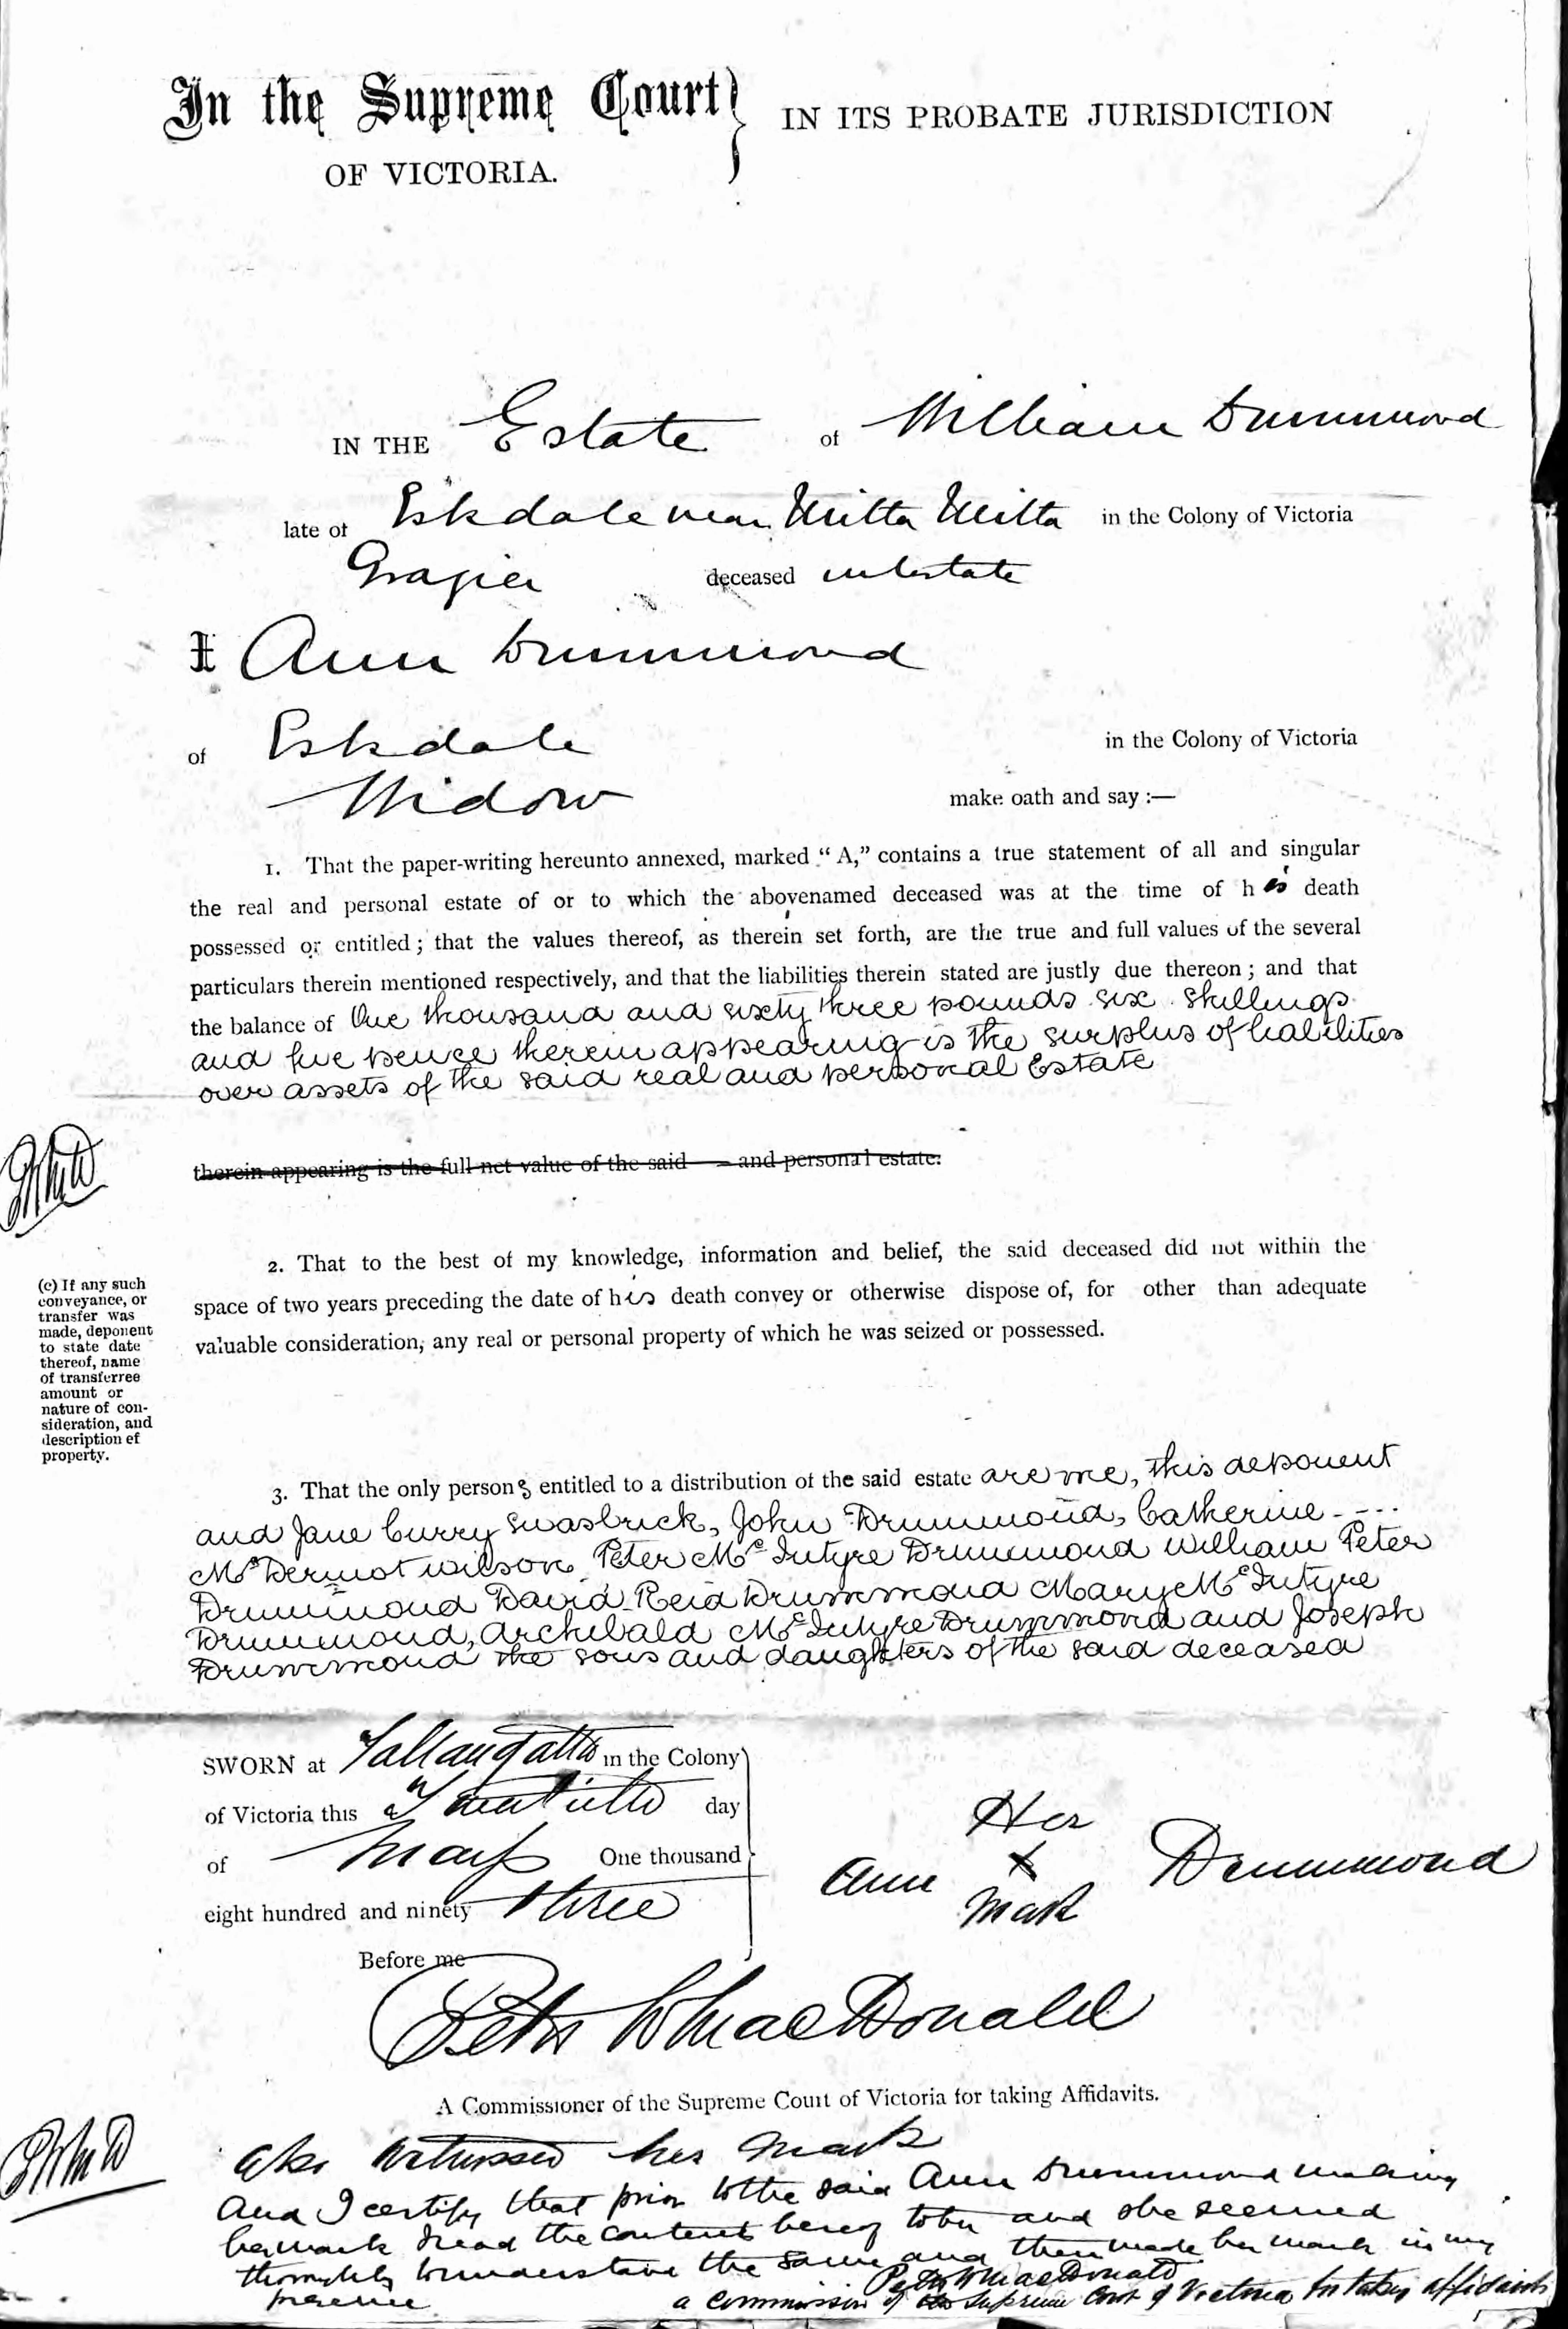 In the Supreme Court } IN ITS PROBATE JURISDICTION
OF VICTORIA.
IN THE Estate of William Drummond
late of Eskdale near Mitta Mitta in the Colony of Victoria
Grazier deceased intestate
I Ann Drummond
of Eskdale in the Colony of Victoria
Widow make oath and say :—
1. That the paper-writing hereunto annexed, marked “A,” contains a true statement of all and singular
the real and personal estate of or to which the abovenamed deceased was at the time of his death
possessed or entitled ; that the values thereof, as therein set forth, are the true and full values of the several
particulars therein mentioned respectively, and that the liabilities therein stated are justly due thereon ; and that
the balance of One thousand and sixty three pounds six shillings
and five pence therein appearing is the surplus of liabilities
over assets of the said real and personal Estate
therein appearing is the full net value of the said — and personal estate.
2. That to the best of my knowledge, information and belief, the said deceased did not within the
space of two years preceding the date of his death convey or otherwise dispose of, for other than adequate
valuable consideration, any real or personal property of which he was seized or possessed.
(c) If any such
conveyance, or
transfer was
made, deponent
to state date
thereof, name
of transferree
amount or
nature of con-
sideration, and
description of
property.
3. That the only persons entitled to a distribution of the said estate are me, this deponent
and Jane Curry Swasbrick, John Drummond, Catherine
McDermot Wilson Peter McIntyre Drummond William Peter
Drummond David Reid Drummond Mary McIntyre
Drummond, Archibald McIntyre Drummond and Joseph
Drummond the sons and daughters of the said deceased
SWORN at Tallangatta in the Colony
of Victoria this Twentieth day
of May One thousand
eight hundred and ninety three
Her
Ann X Drummond
Mark
Before me
Peter W MacDonald
A Commissioner of the Supreme Court of Victoria for taking Affidavits.
who witnessed her mark
And I certify that prior to the said Ann Drummond making
her mark I read the contents hereof to her and she seemed
thoroughly to understand the same and then made her mark in my
presence
Peter W MacDonald
a Commissioner of the Supreme Court of Victoria for taking affidavits